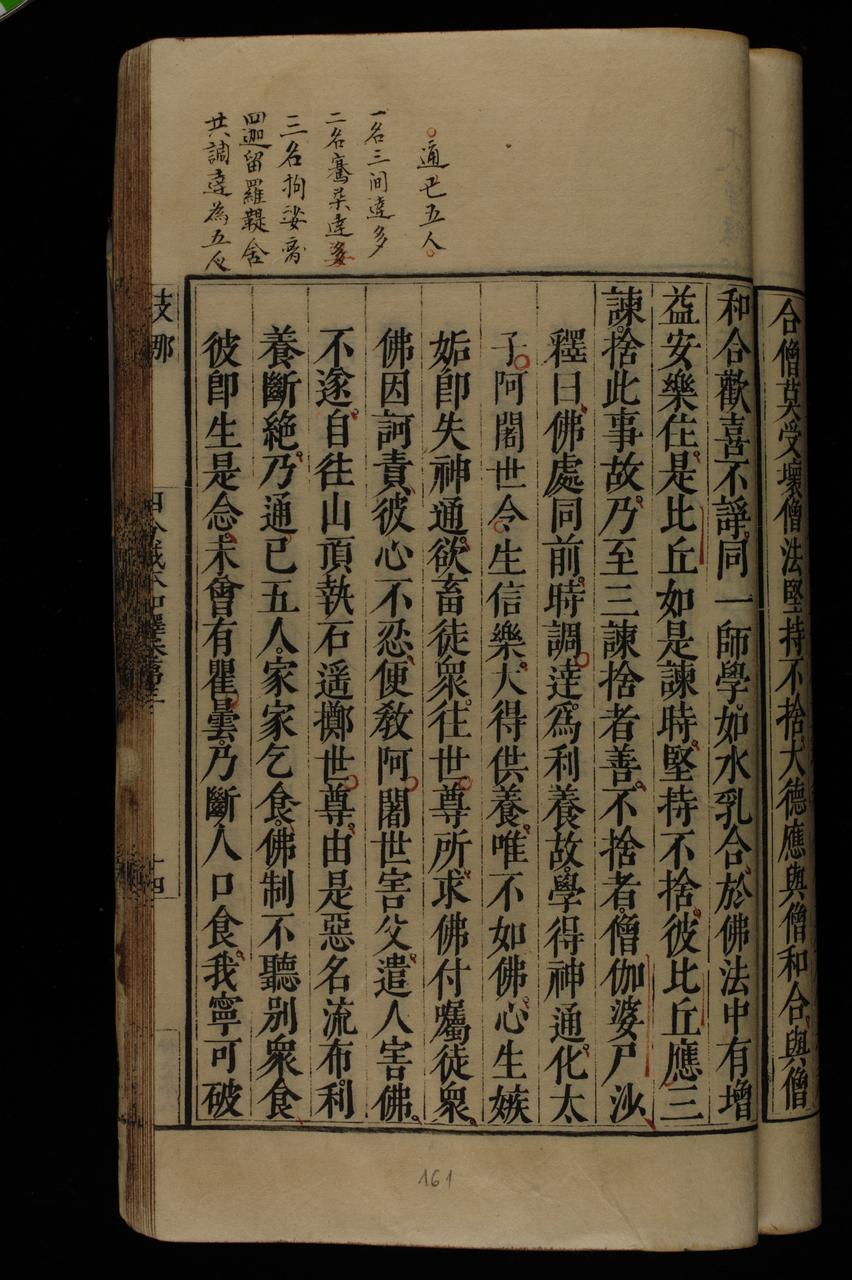 合僧莫受壞僧法堅持不捨大德應與僧和合與僧
通已五人
一名三间達多
二名騫茶達多
三名拘婆離
四迦留羅鞮舍
共調達為五人
和合歡喜不諍同一師學如水乳合於佛法中有增
益安樂住是比丘如是諫時堅持不捨彼比丘應三
諫捨此事故乃至三諫捨者善不捨者僧伽婆尸沙
釋曰佛處同前時調達為利養故學得神通化太
子阿闍世令生信樂大得供養唯不如佛心生嫉
妬卽失神通欲畜徒衆往世尊所求佛付囑徒衆
佛因訶責彼心不忍便敎阿闍世害父遣人害佛
不遂自往山頂執石遥擲世尊由是惡名流布利
養斷絶乃通已五人家家乞食佛制不聽别衆食
彼卽生是念未曾有瞿曇乃斷人口食我寧可破
支那
十四
161